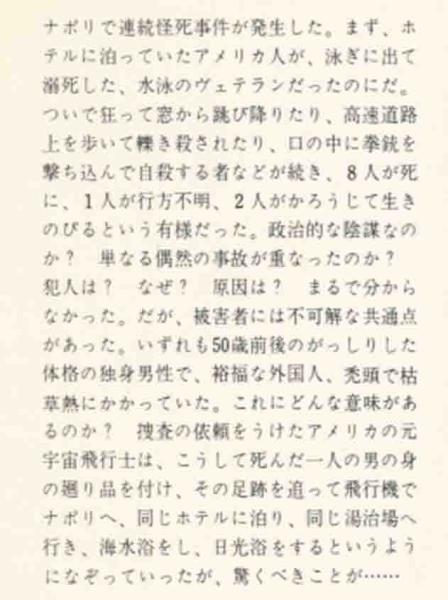 ナポリで連続怪死事件が発生した。まず、ホ
テルに泊っていたアメリカ人が、泳ぎに出て
溺死した、水泳のヴェテランだったのにだ。
ついで狂って窓から跳び降りたり、高速道路
上を歩いて轢き殺されたり、口の中に拳銃を
撃ち込んで自殺する者などが続き、8人が死
に、1人が行方不明、2人がかろうじて生き
のびるという有様だった。政治的な陰謀なの
か？　単なる偶然の事故が重なったのか？
犯人は？　なぜ？　原因は？　まるで分から
なかった。だが、被害者には不可解な共通点
があった。いずれも50歳前後のがっしりした
体格の独身男性で、裕福な外国人、禿頭で枯
草熱にかかっていた。これにどんな意味があ
るのか？　捜査の依頼をうけたアメリカの元
宇宙飛行士は、こうして死んだ一人の男の身
の廻り品を付け、その足跡を追って飛行機で
ナポリへ、同じホテルに泊り、同じ湯治場へ
行き、海水浴をし、日光浴をするというよう
になぞっていったが、驚くべきことが……